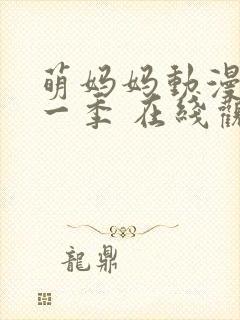 萌妈妈動漫
一季 在綫觀
龍鼎